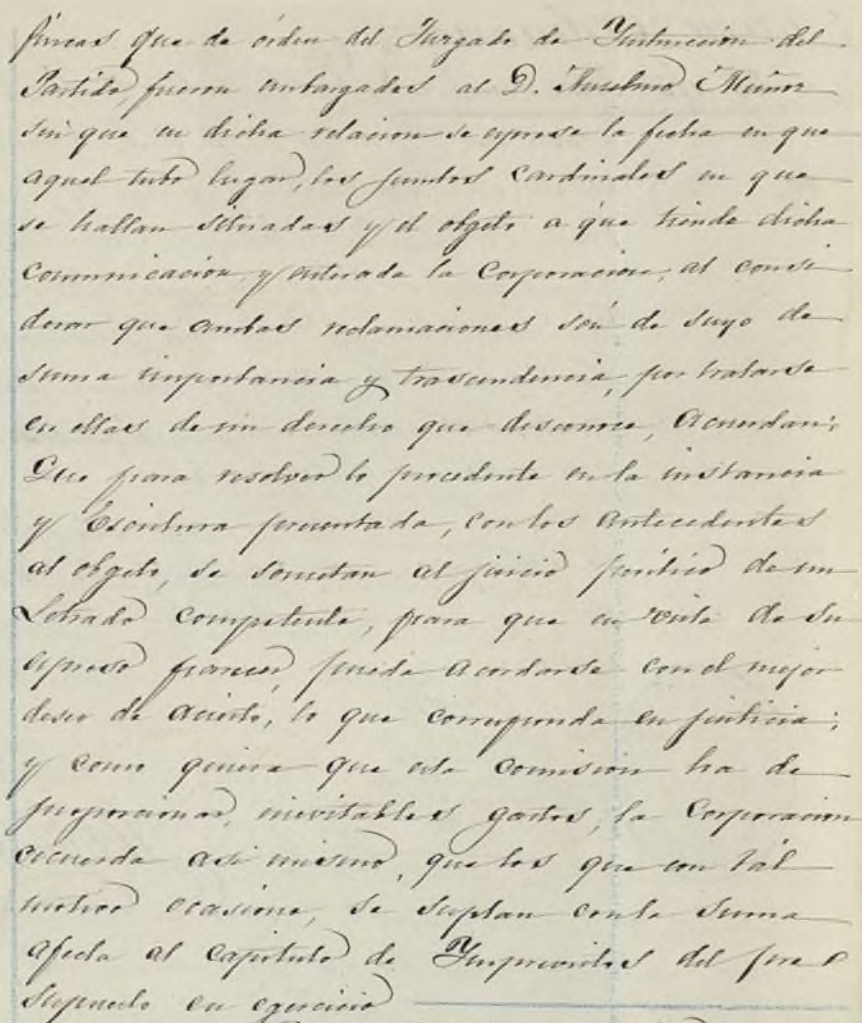 fincas que de orden del Jurgado de Instruccion del
Partido, fueron embargadas al D. Anselmo Muñoz
sin que en dicha relacion se esprese la fecha en que
aquel tubo lugar, los puntos Cardinales en que
se hallan situadas y el obgeto a que tiende dicha
Comunicacion, y enterada la Corporacion, al consi
derar que ambas reclamaciones son de suyo de
suma importancia y trascendencia, por tratarse
en ellas de un derecho que desconoce, Acuerdan:
Que para resolver lo procedente en la instancia
y Escritura presentada, con los antecedentes
al obgeto, se sometan al juicio de un
Letrado competente, para que en vista de su
espreso pueda acordarse con el mejor
deseo de acierto, lo que corresponda en justicia;
y como quiera que esta Comision ha de
proporcionar, inevitables gastos, la Corporacion
acuerda asi mismo, que los que con tál
motivo ocasione, se suplan con la suma
afecta al Capitulo de Imprevistos del pre
supuesto en egercicio